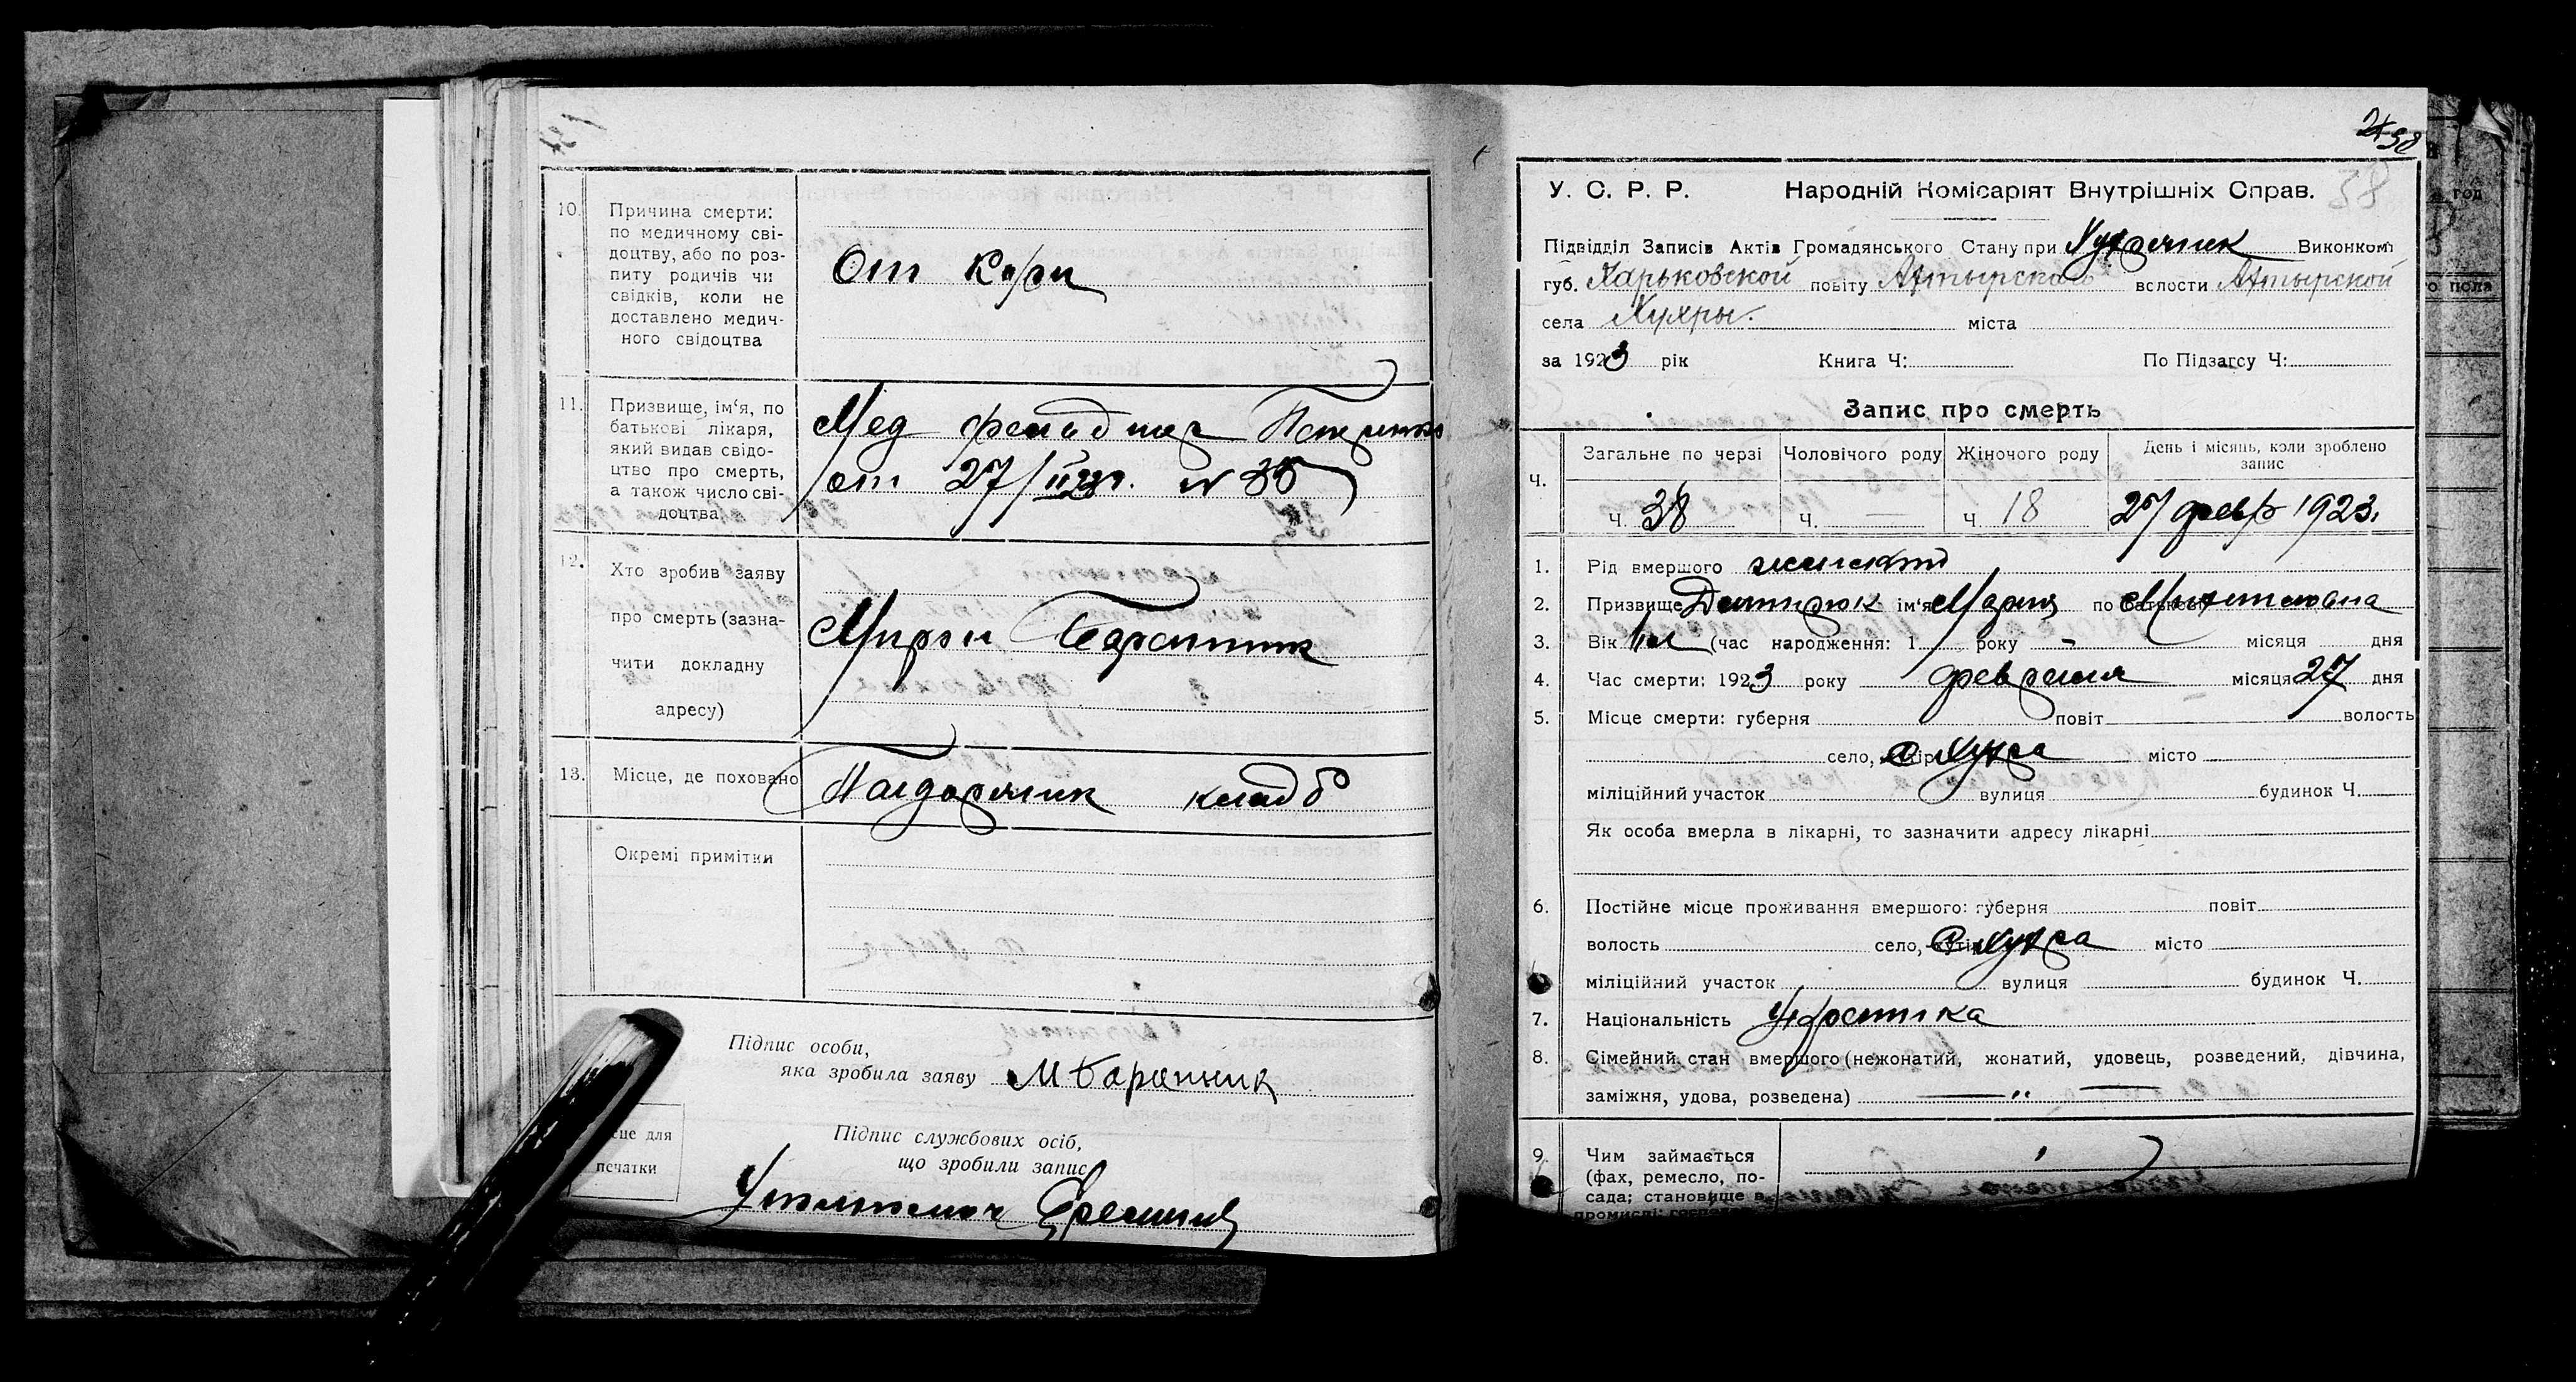 10. Причина смерти:
по медичному сві-
доцтву, або по роз-
питу родичів чи
свідків, коли не
доставлено медич-
ного свідоцтва
От Кори
11. Призвище, ім‘я, по
батькові лікаря,
який видав свідо-
цтво про смерть,
а також число сві-
доцтва
Мед фельдшер
от 27/II 23г. N 35
12. Хто зробив заяву
про смерть (зазна-
чити докладну
адресу)
Мирон Баранник
13. Місце, де поховано
кладб
Окремі примітки
Підпис особи,
яка зробила заяву М Баранник
Підпис службових осіб,
що зробили запис
печатки
38
У. С. Р. Р. Народній Комісаріят Внутрішніх Справ. 38
Підвідділ Записів Актів Громадянського Стану при Хухрянск Виконком
губ. Харьковской повіту Ахтырска вслости Ахтырской
села Хухры. міста
за 1923 рік Книга Ч: По Підзагсу Ч:
Запис про смерть
Ч. Загальне по черзі Чоловічого роду Жіночого роду День і місяць, коли зроблено запис
Ч. 38 Ч. — Ч. 18 27 февр 1923.
1. Рід вмершого женский
2. Призвище ім‘я Мария по батькові
3. Вік (час народження: 1 року - місяця дня
4. Час смерти: 1923 року февраля місяця 27 дня
5. Місце смерти: губерня повіт волость
село, Хухра місто
міліційний участок вулиця будинок Ч.
Як особа вмерла в лікарні, то зазначити адресу лікарні
6. Постійне місце проживання вмершого: губерня повіт
волость село, Хухра місто
міліційний участок вулиця будинок Ч.
7. Національність Украинка
8. Сімейний стан вмершого (нежонатий, жонатий, удовець, розведений, дівчина,
заміжня, удова, розведена) — „ —
9. Чим займається
(фах, ремесло, по-
сада; становище в
промислі;